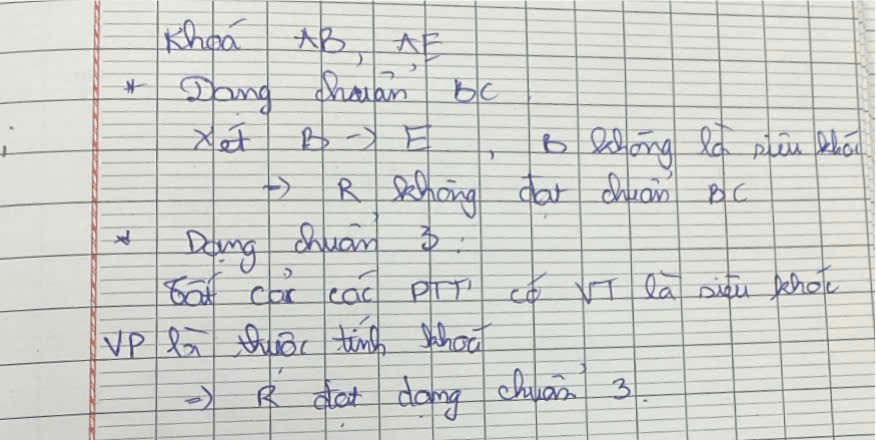 Khoá AB, AE
* Dạng chuẩn BC
Xét B -> E, B không là siêu khoá
-> R không đạt chuẩn BC
* Dạng chuẩn 3:
Tất cả các PTT có VT là siêu khoá
VP là thuộc tính khoá
=> R đạt dạng chuẩn 3.